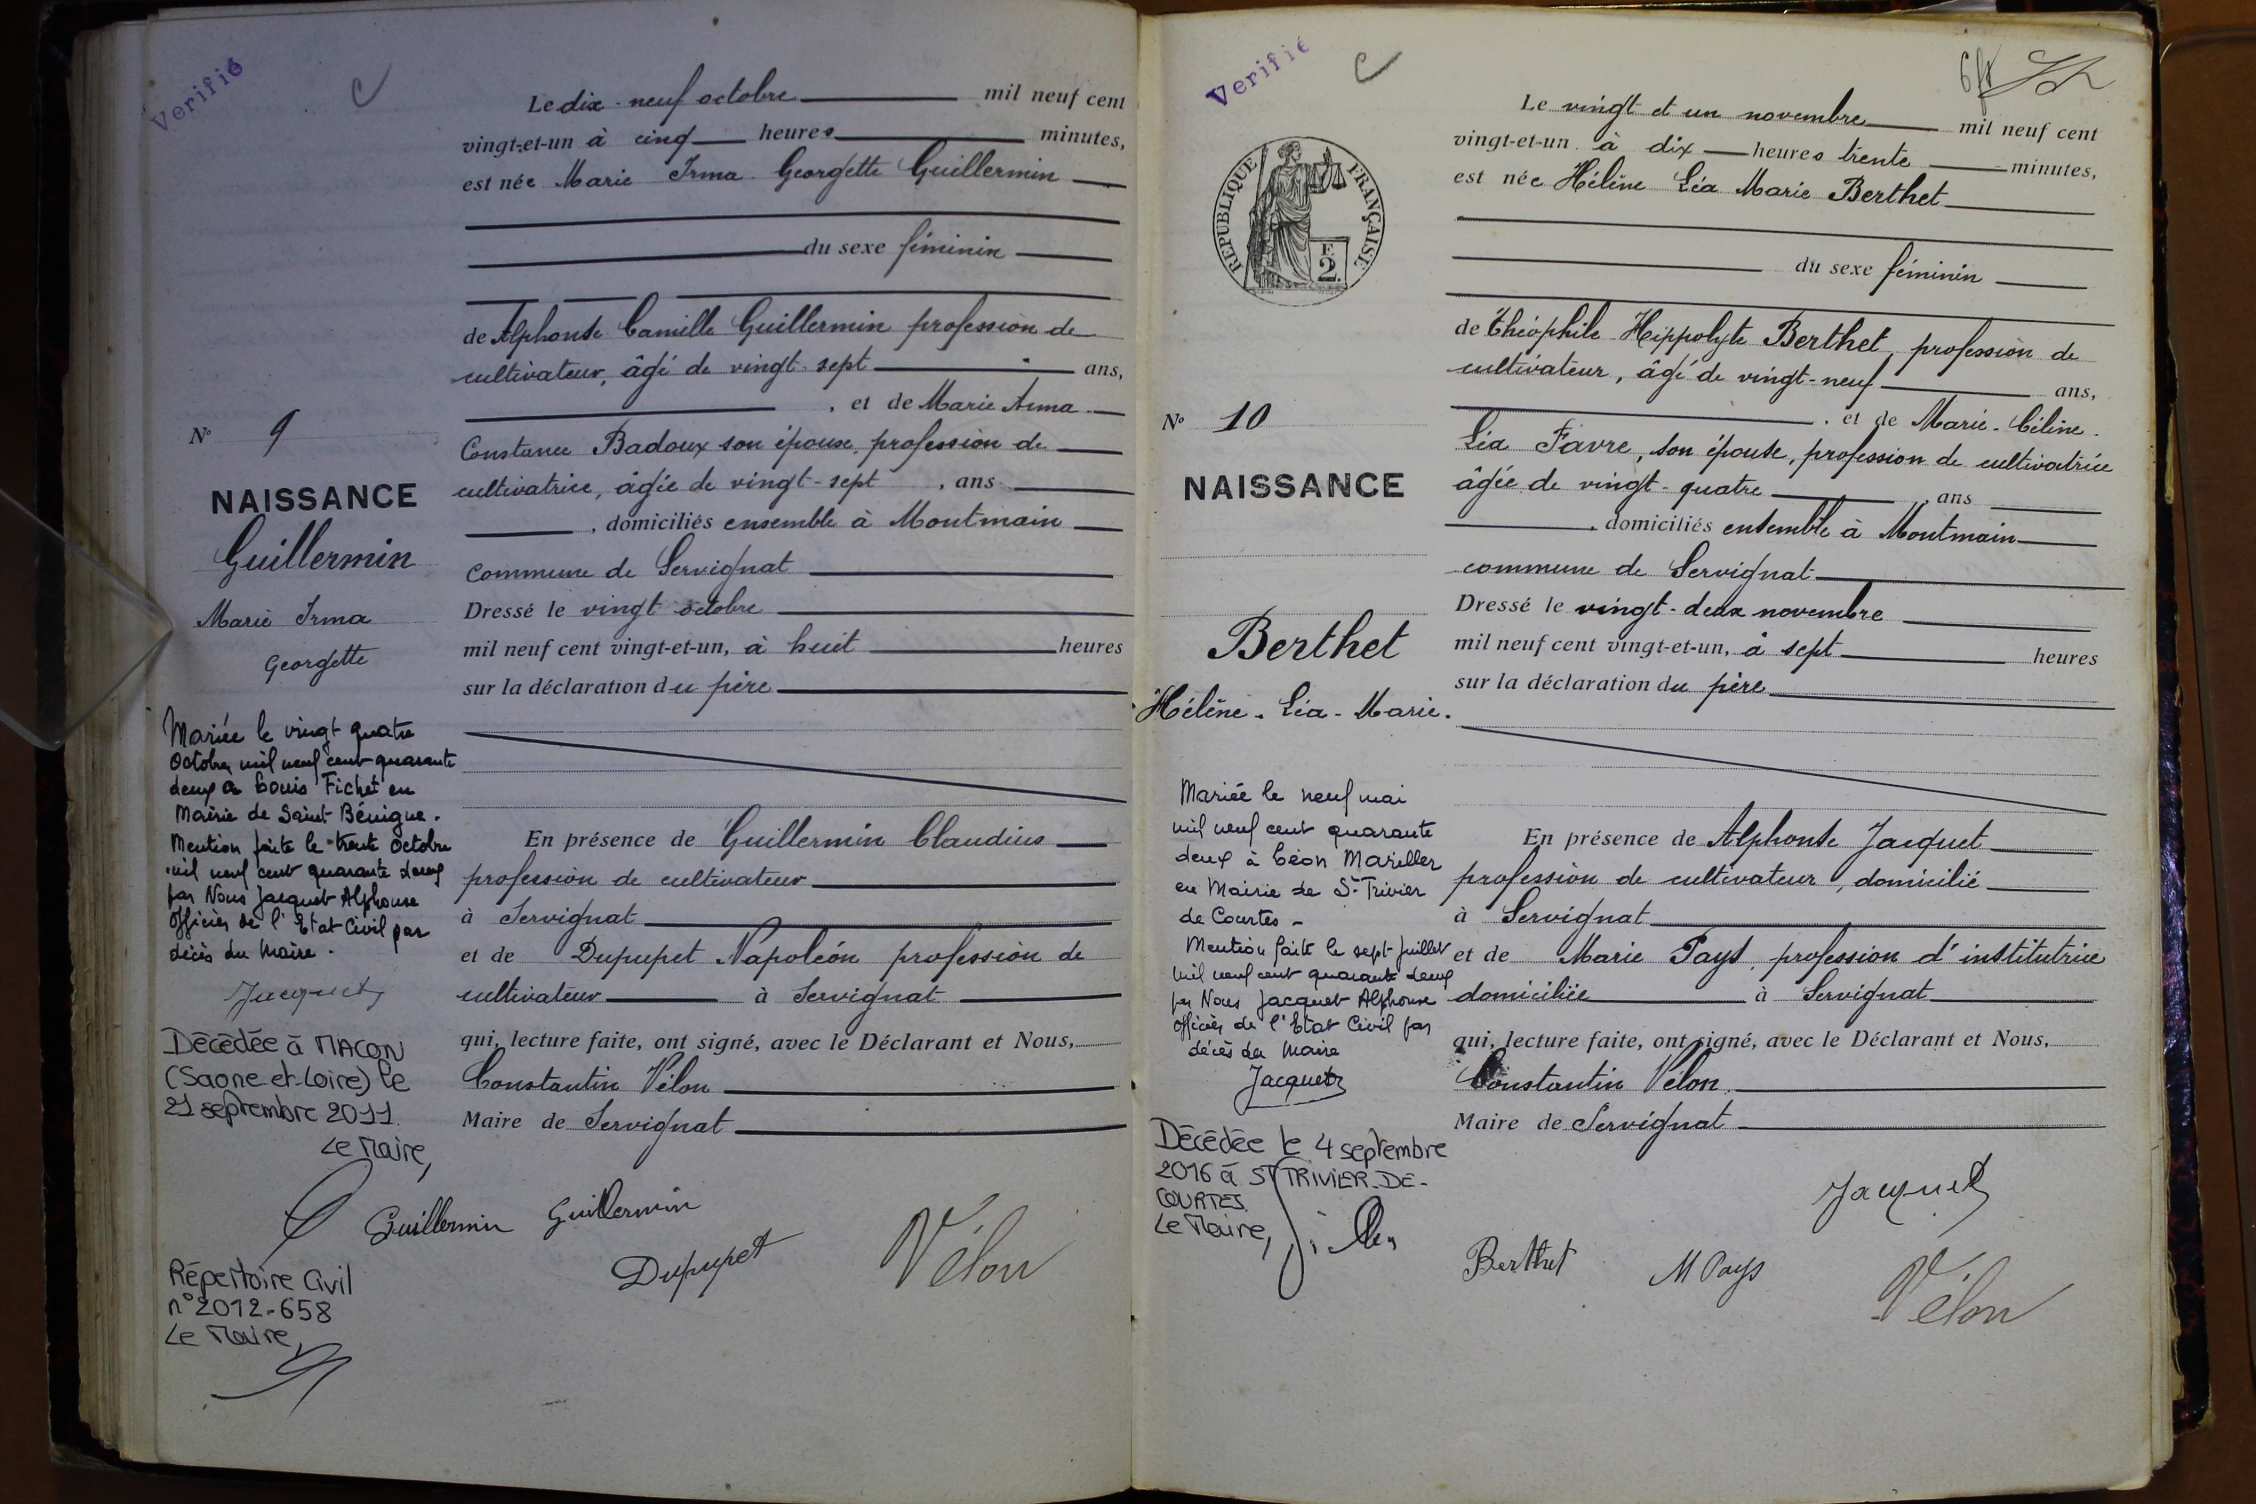 Verifié
C
Le dix-neuf octobre mil neuf cent
vingt-et-un à cinq heures minutes,
est née Marie Irma Georgette Guillermin
du sexe féminin
de Alphonse Camille Guillermin profession de
cultivateur, âgé de vingt-sept ans,
, et de Marie Anna
Constance Badoux son épouse, profession de
cultivatrice, âgée de vingt-sept , ans
, domiciliés ensemble à Montmain
commune de Servignat
Dressé le vingt octobre
mil neuf cent vingt-et-un, à huit heures
sur la déclaration du père
En présence de Guillermin Claudius
profession de cultivateur
à Servignat
et de Dupupet Napoléon profession de
cultivateur à Servignat
qui, lecture faite, ont signé, avec le Déclarant et Nous,
Constantin Vélon
Maire de Servignat
Guillermin Guillermin
Dupupet Vélon
N° 9
NAISSANCE
Guillermin
Marie Irma
Georgette
Mariée le vingt quatre
Octobre mil neuf cent quarante
deux à Louis Fichet en
Mairie de Saint-Bénigne.
Mention faite le trente Octobre
mil neuf cent quarante deux
par Nous Jacquet Alphonse
Officier de l'Etat Civil par
décès du Maire.
Jacquet
Décédée à MACON
(Saone-et-Loire) le
21 septembre 2011.
Le Maire,
Répertoire Civil
n° 2012-658
Le Maire,
Verifié
C
Le vingt et un novembre mil neuf cent
vingt-et-un à dix heures trente minutes,
est née Hélène Léa Marie Berthet
du sexe féminin
de Théophile Hippolyte Berthet, profession de
cultivateur, âgé de vingt-neuf ans,
, et de Marie-Céline-
Léa Favre, son épouse, profession de cultivatrice
âgée de vingt-quatre , ans
, domiciliés ensemble à Montmain
commune de Servignat
Dressé le vingt-deux novembre
mil neuf cent vingt-et-un, à sept heures
sur la déclaration du père
En présence de Alphonse Jacquet
profession de cultivateur, domicilié
à Servignat
et de Marie Pays, profession d'institutrice
domiciliée à Servignat
qui, lecture faite, ont signé, avec le Déclarant et Nous,
Constantin Vélon
Maire de Servignat
Jacquet
Berthet M Pays Vélon
RÉPUBLIQUE FRANÇAISE
F.
2.
N° 10
NAISSANCE
Berthet
Hélène-Léa-Marie.
Mariée le neuf mai
mil neuf cent quarante
deux à Léon Mariller
en Mairie de St-Trivier
de Courtes -
Mention faite le sept Juillet
mil neuf cent quarante deux
par Nous Jacquet Alphonse
Officier de l'Etat Civil par
décès du Maire
Jacquet
Décédée le 4 septembre
2016 à ST TRIVIER-DE-
COURTES.
Le Maire,